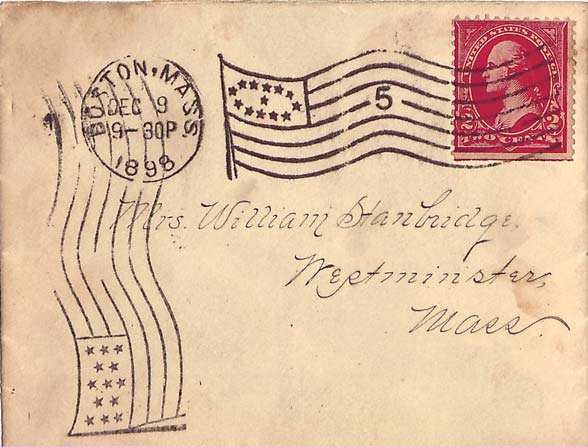 BOSTON, MASS
DEC 9
9-30P
1898
5
UNITED STATES POSTAGE
2 2
TWO CENTS
Mrs. William Stanbridge,
Westminster,
Mass.